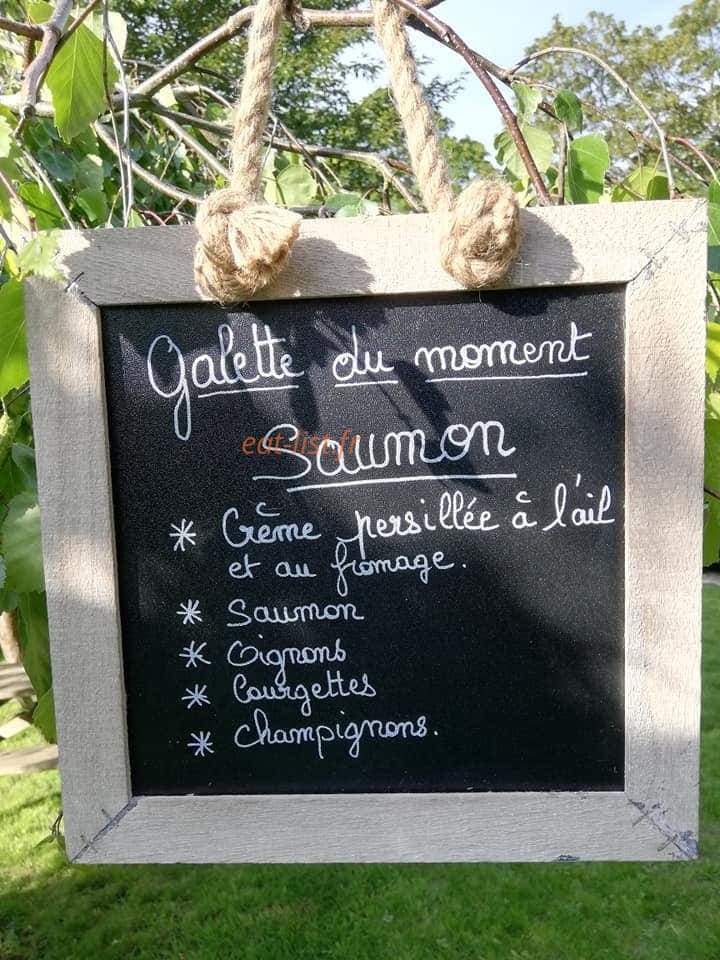 Galette du moment
Saumon
eat-list.fr
* Crème persillée à l'ail
et au fromage.
* Saumon
* Oignons
* Courgettes
* champignons.